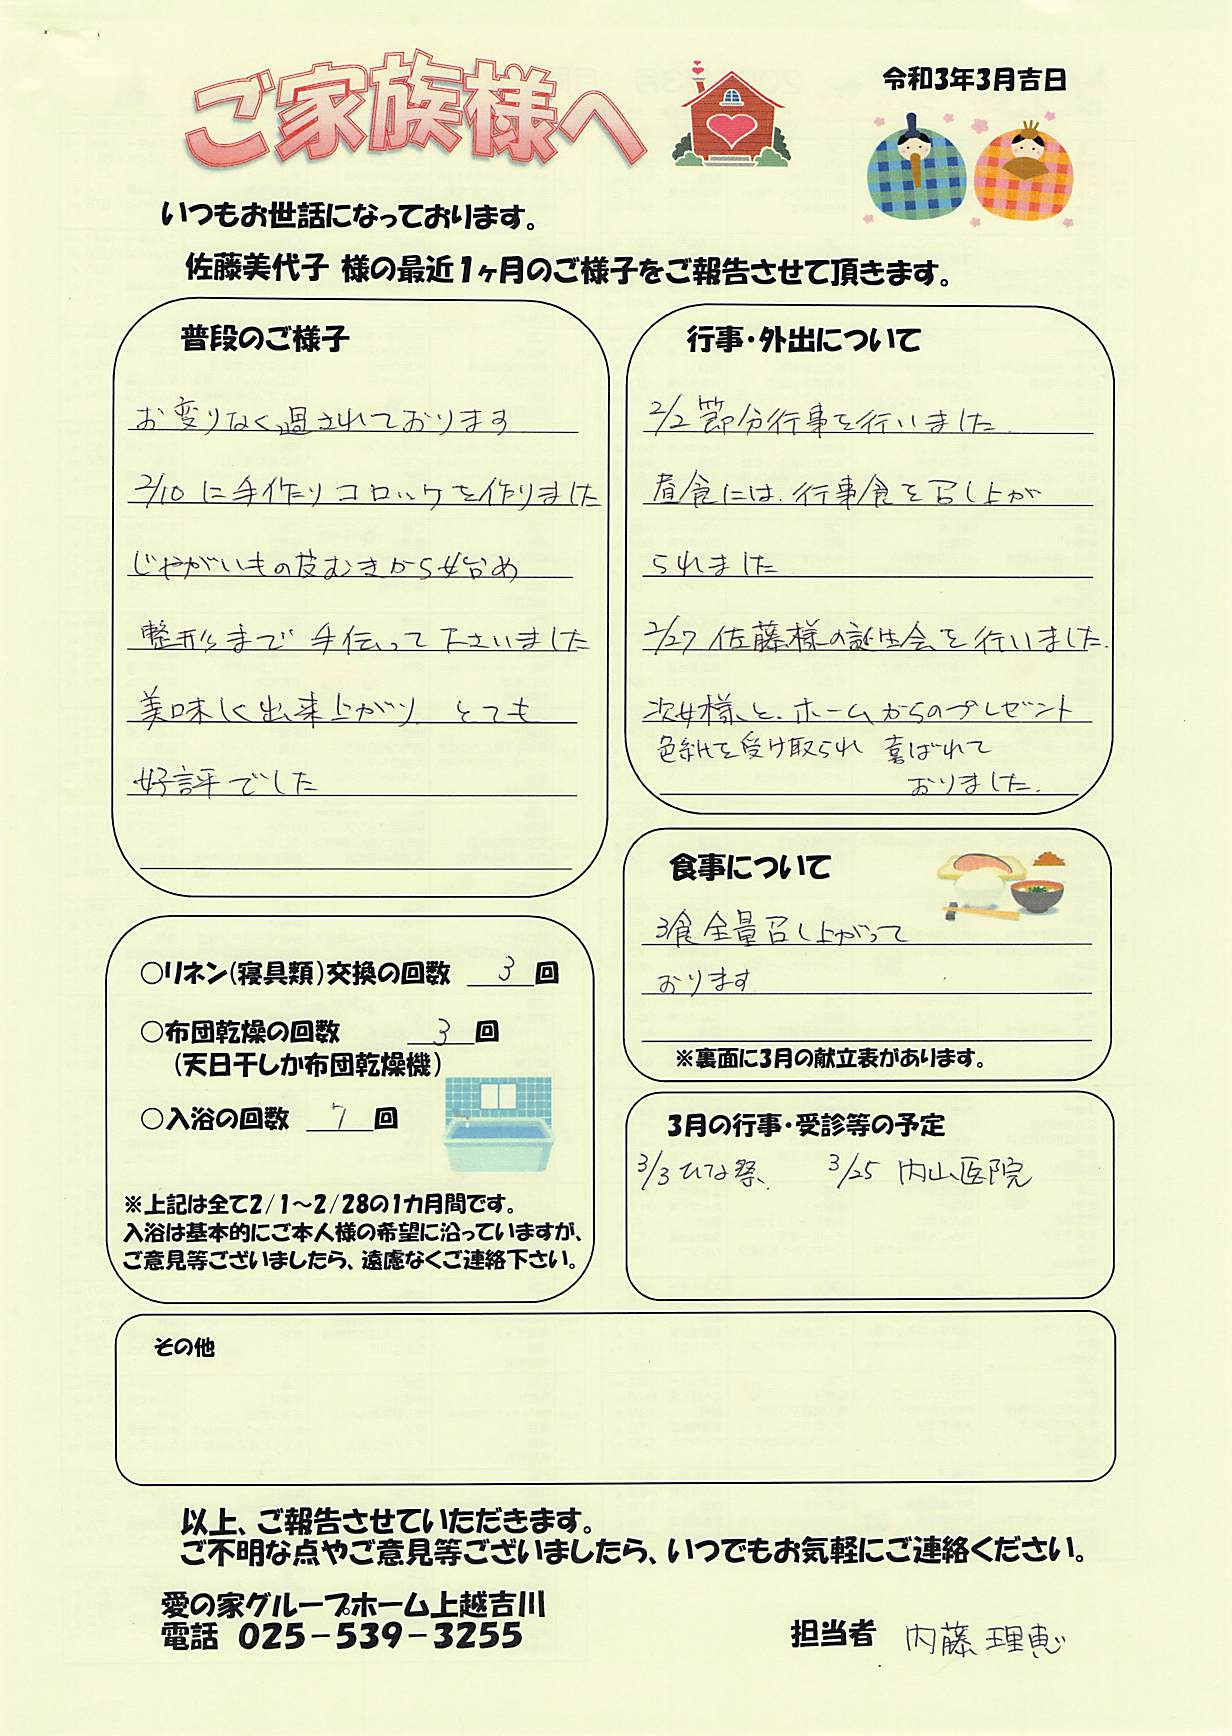 ご家族様へ
令和3年3月吉日
いつもお世話になっております。
佐藤美代子 様の最近1ヶ月のご様子をご報告させて頂きます。
普段のご様子
お変りなく過されております
2/10 に手作りコロッケを作りました
じゃがいもの皮むきから始め
整形まで 手伝って下さいました
美味しく出来上がり とても
好評でした
行事・外出について
2/2 節分行事を行いました
昼食には、行事食を召し上が
られました
2/27 佐藤様の誕生会を行いました。
次女様と、ホームからのプレゼント
色紙を受け取られ 喜ばれて
おりました。
食事について
3食全量召し上がって
おります
※裏面に3月の献立表があります。
○リネン(寝具類)交換の回数 3 回
○布団乾燥の回数 3 回
(天日干しか布団乾燥機)
○入浴の回数 7 回
※上記は全て2/1～2/28の1カ月間です。
入浴は基本的にご本人様の希望に沿っていますが、
ご意見等ございましたら、遠慮なくご連絡下さい。
3月の行事・受診等の予定
3/3 ひな祭、 3/25 内山医院
その他
以上、ご報告させていただきます。
ご不明な点やご意見等ございましたら、いつでもお気軽にご連絡ください。
愛の家グループホーム上越吉川
電話 025-539-3255
担当者 内藤 理恵